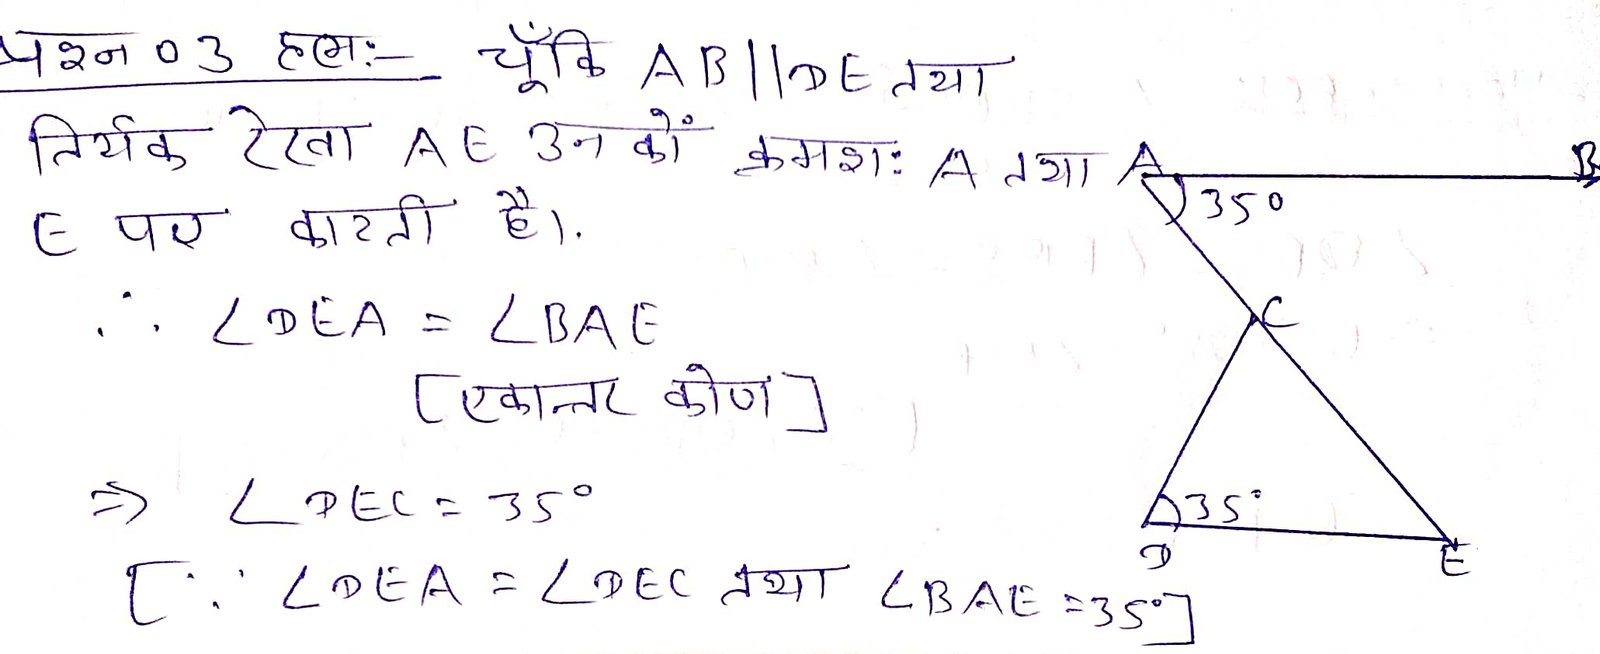 प्रश्न 03 हलः- चूँकि AB||DE तथा
तिर्यक रेखा AE उनको क्रमशः A तथा
E पर काटती है।.
∴ ∠DEA = ∠BAE
[एकान्तर कोण]
⇒ ∠DEC = 35°
[∵ ∠DEA = ∠DEC तथा ∠BAE = 35°]
A
B
35°
C
35°
D
E